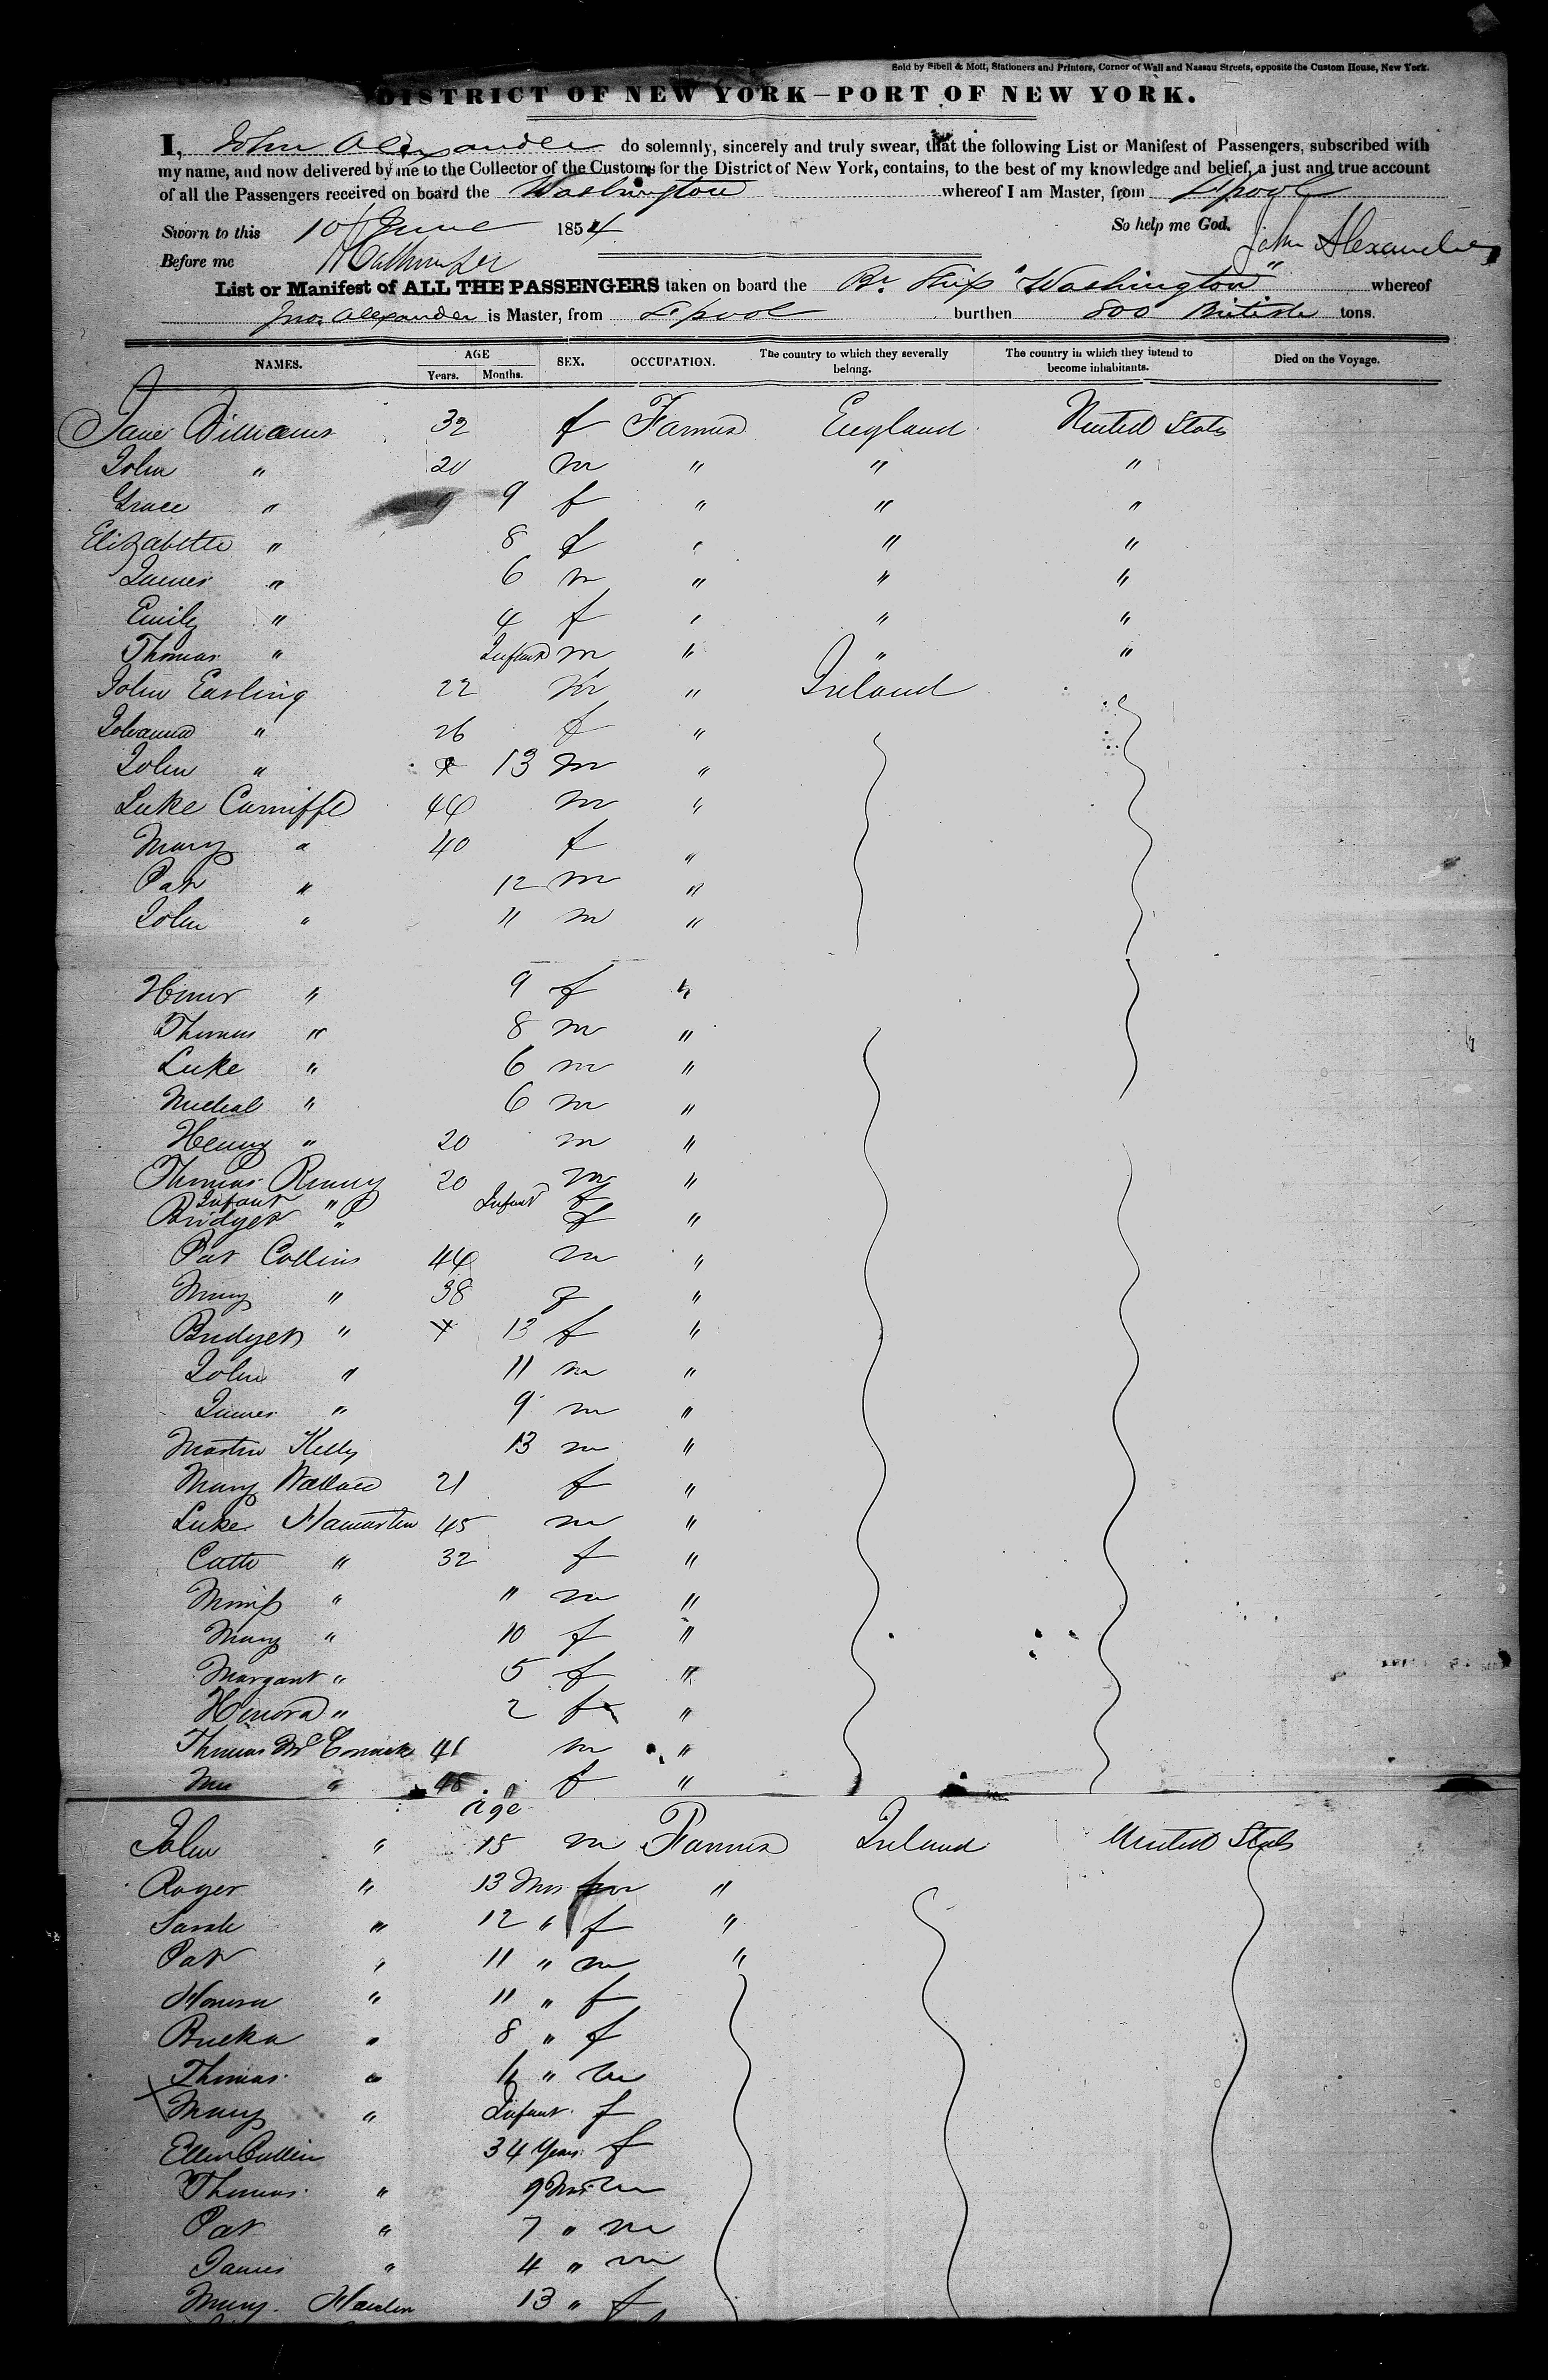 Sold by Sibell & Mott, Stationers and Printers, Corner of Wall and Nassau Streets, opposite the Custom House, New York.
DISTRICT OF NEW YORK—PORT OF NEW YORK.
I, John Alexander do solemnly, sincerely and truly swear, that the following List or Manifest of Passengers, subscribed with
my name, and now delivered by me to the Collector of the Customs for the District of New York, contains, to the best of my knowledge and belief, a just and true account
of all the Passengers received on board the Washington whereof I am Master, from L'pool
Sworn to this 10 June 1854 So help me God. John Alexander
Before me
List or Manifest of ALL THE PASSENGERS taken on board the Br. Ship "Washington" whereof
Jno. Alexander is Master, from L'pool burthen 800 British tons.
NAMES. AGE SEX. OCCUPATION. The country to which they severally belong. The country in which they intend to become inhabitants. Died on the Voyage.
Years. Months.
Jane Williams 32 f Farmer England United States
John " 20 m " " "
Grace " 9 f " " "
Elizabeth " 8 f " " "
James " 6 m " " "
Emily " 4 f " " "
Thomas " Infant m " " "
John Easling 22 m " Ireland
Johanna " 26 f "
John " 13 m "
Luke Cunniffe 44 m "
Mary " 40 f "
Pat " 12 m "
John " 11 m "
Honor " 9 f "
Thomas " 8 m "
Luke " 6 m "
Micheal " 6 m "
Henry " 20 m "
Thomas 20 m "
Infant " Infant f
Bridget " f "
Pat Collins 44 m "
Mary " 38 f "
Bridget " 13 f "
John " 11 m "
James " 9 m "
Martin Kelly 13 m "
Mary Wallace 21 f "
Luke 45 m "
Cath " 32 f "
" " m "
Mary " 10 f "
Margaret " 5 f "
Honora " 2 f "
Thomas McCormick 41 m "
" 45 f "
Age
John " 15 m Farmer Ireland United States
Roger " 13 Mos m "
Sarah " 12 " f "
Pat " 11 " m "
Honora " 11 " f
" 8 " f
Thomas " " m
Mary " Infant f
Ellen Cullin 34 Years f
Thomas " 9 Mos m
Pat " 7 " m
James " 4 " m
Mary 13 " f